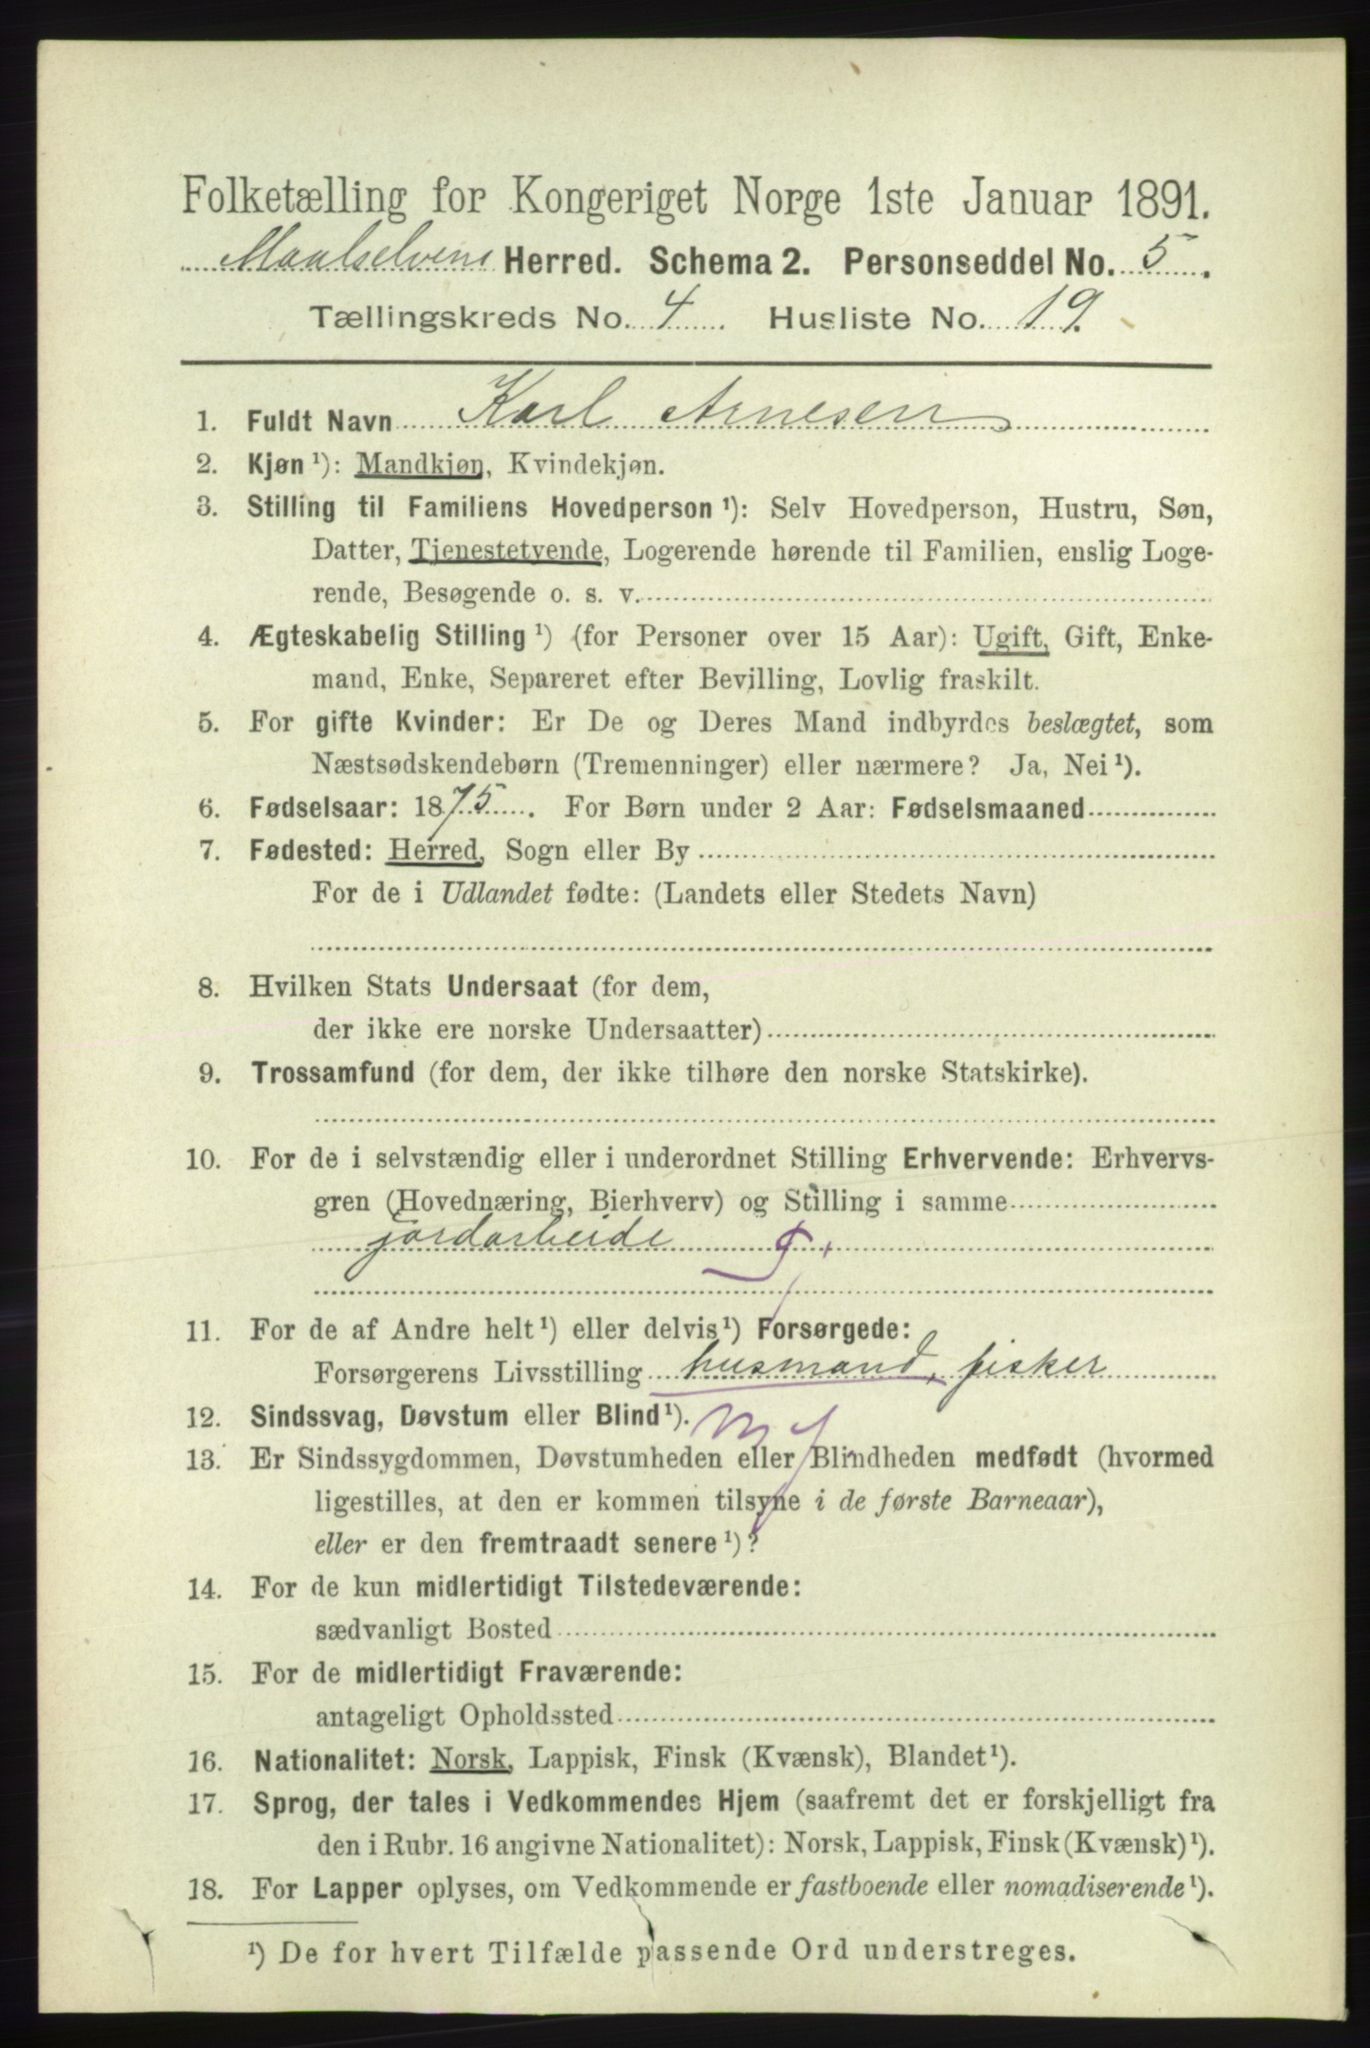 Folketælling for Kongeriget Norge 1ste Januar 1891.
Maalselvens Herred. Schema 2. Personseddel No. 5.
Tællingskreds No. 4 Husliste No. 19.
1. Fuldt Navn Karl Arnesen
2. Kjøn ¹): Mandkjøn, Kvindekjøn.
3. Stilling til Familiens Hovedperson ¹): Selv Hovedperson, Hustru, Søn,
Datter, Tjenestetyende, Logerende hørende til Familien, enslig Loge-
rende, Besøgende o. s. v.
4. Ægteskabelig Stilling ¹) (for Personer over 15 Aar): Ugift, Gift, Enke-
mand, Enke, Separeret efter Bevilling, Lovlig fraskilt.
5. For gifte Kvinder: Er De og Deres Mand indbyrdes beslægtet, som
Næstsødskendebørn (Tremenninger) eller nærmere? Ja, Nei ¹).
6. Fødselsaar: 1875. For Børn under 2 Aar: Fødselsmaaned
7. Fødested: Herred, Sogn eller By
For de i Udlandet fødte: (Landets eller Stedets Navn)
8. Hvilken Stats Undersaat (for dem,
der ikke ere norske Undersaatter)
9. Trossamfund (for dem, der ikke tilhøre den norske Statskirke).
10. For de i selvstændig eller i underordnet Stilling Erhvervende: Erhvervs-
gren (Hovednæring, Bierhverv) og Stilling i samme
jordarbeide
11. For de af Andre helt ¹) eller delvis ¹) Forsørgede:
Forsørgerens Livsstilling husmand, fisker
12. Sindssvag, Døvstum eller Blind ¹).
13. Er Sindssygdommen, Døvstumheden eller Blindheden medfødt (hvormed
ligestilles, at den er kommen tilsyne i de første Barneaar),
eller er den fremtraadt senere ¹)?
14. For de kun midlertidigt Tilstedeværende:
sædvanligt Bosted
15. For de midlertidigt Fraværende:
antageligt Opholdssted
16. Nationalitet: Norsk, Lappisk, Finsk (Kvænsk), Blandet ¹).
17. Sprog, der tales i Vedkommendes Hjem (saafremt det er forskjelligt fra
den i Rubr. 16 angivne Nationalitet): Norsk, Lappisk, Finsk (Kvænsk) ¹).
18. For Lapper oplyses, om Vedkommende er fastboende eller nomadiserende ¹).
¹) De for hvert Tilfælde passende Ord understreges.